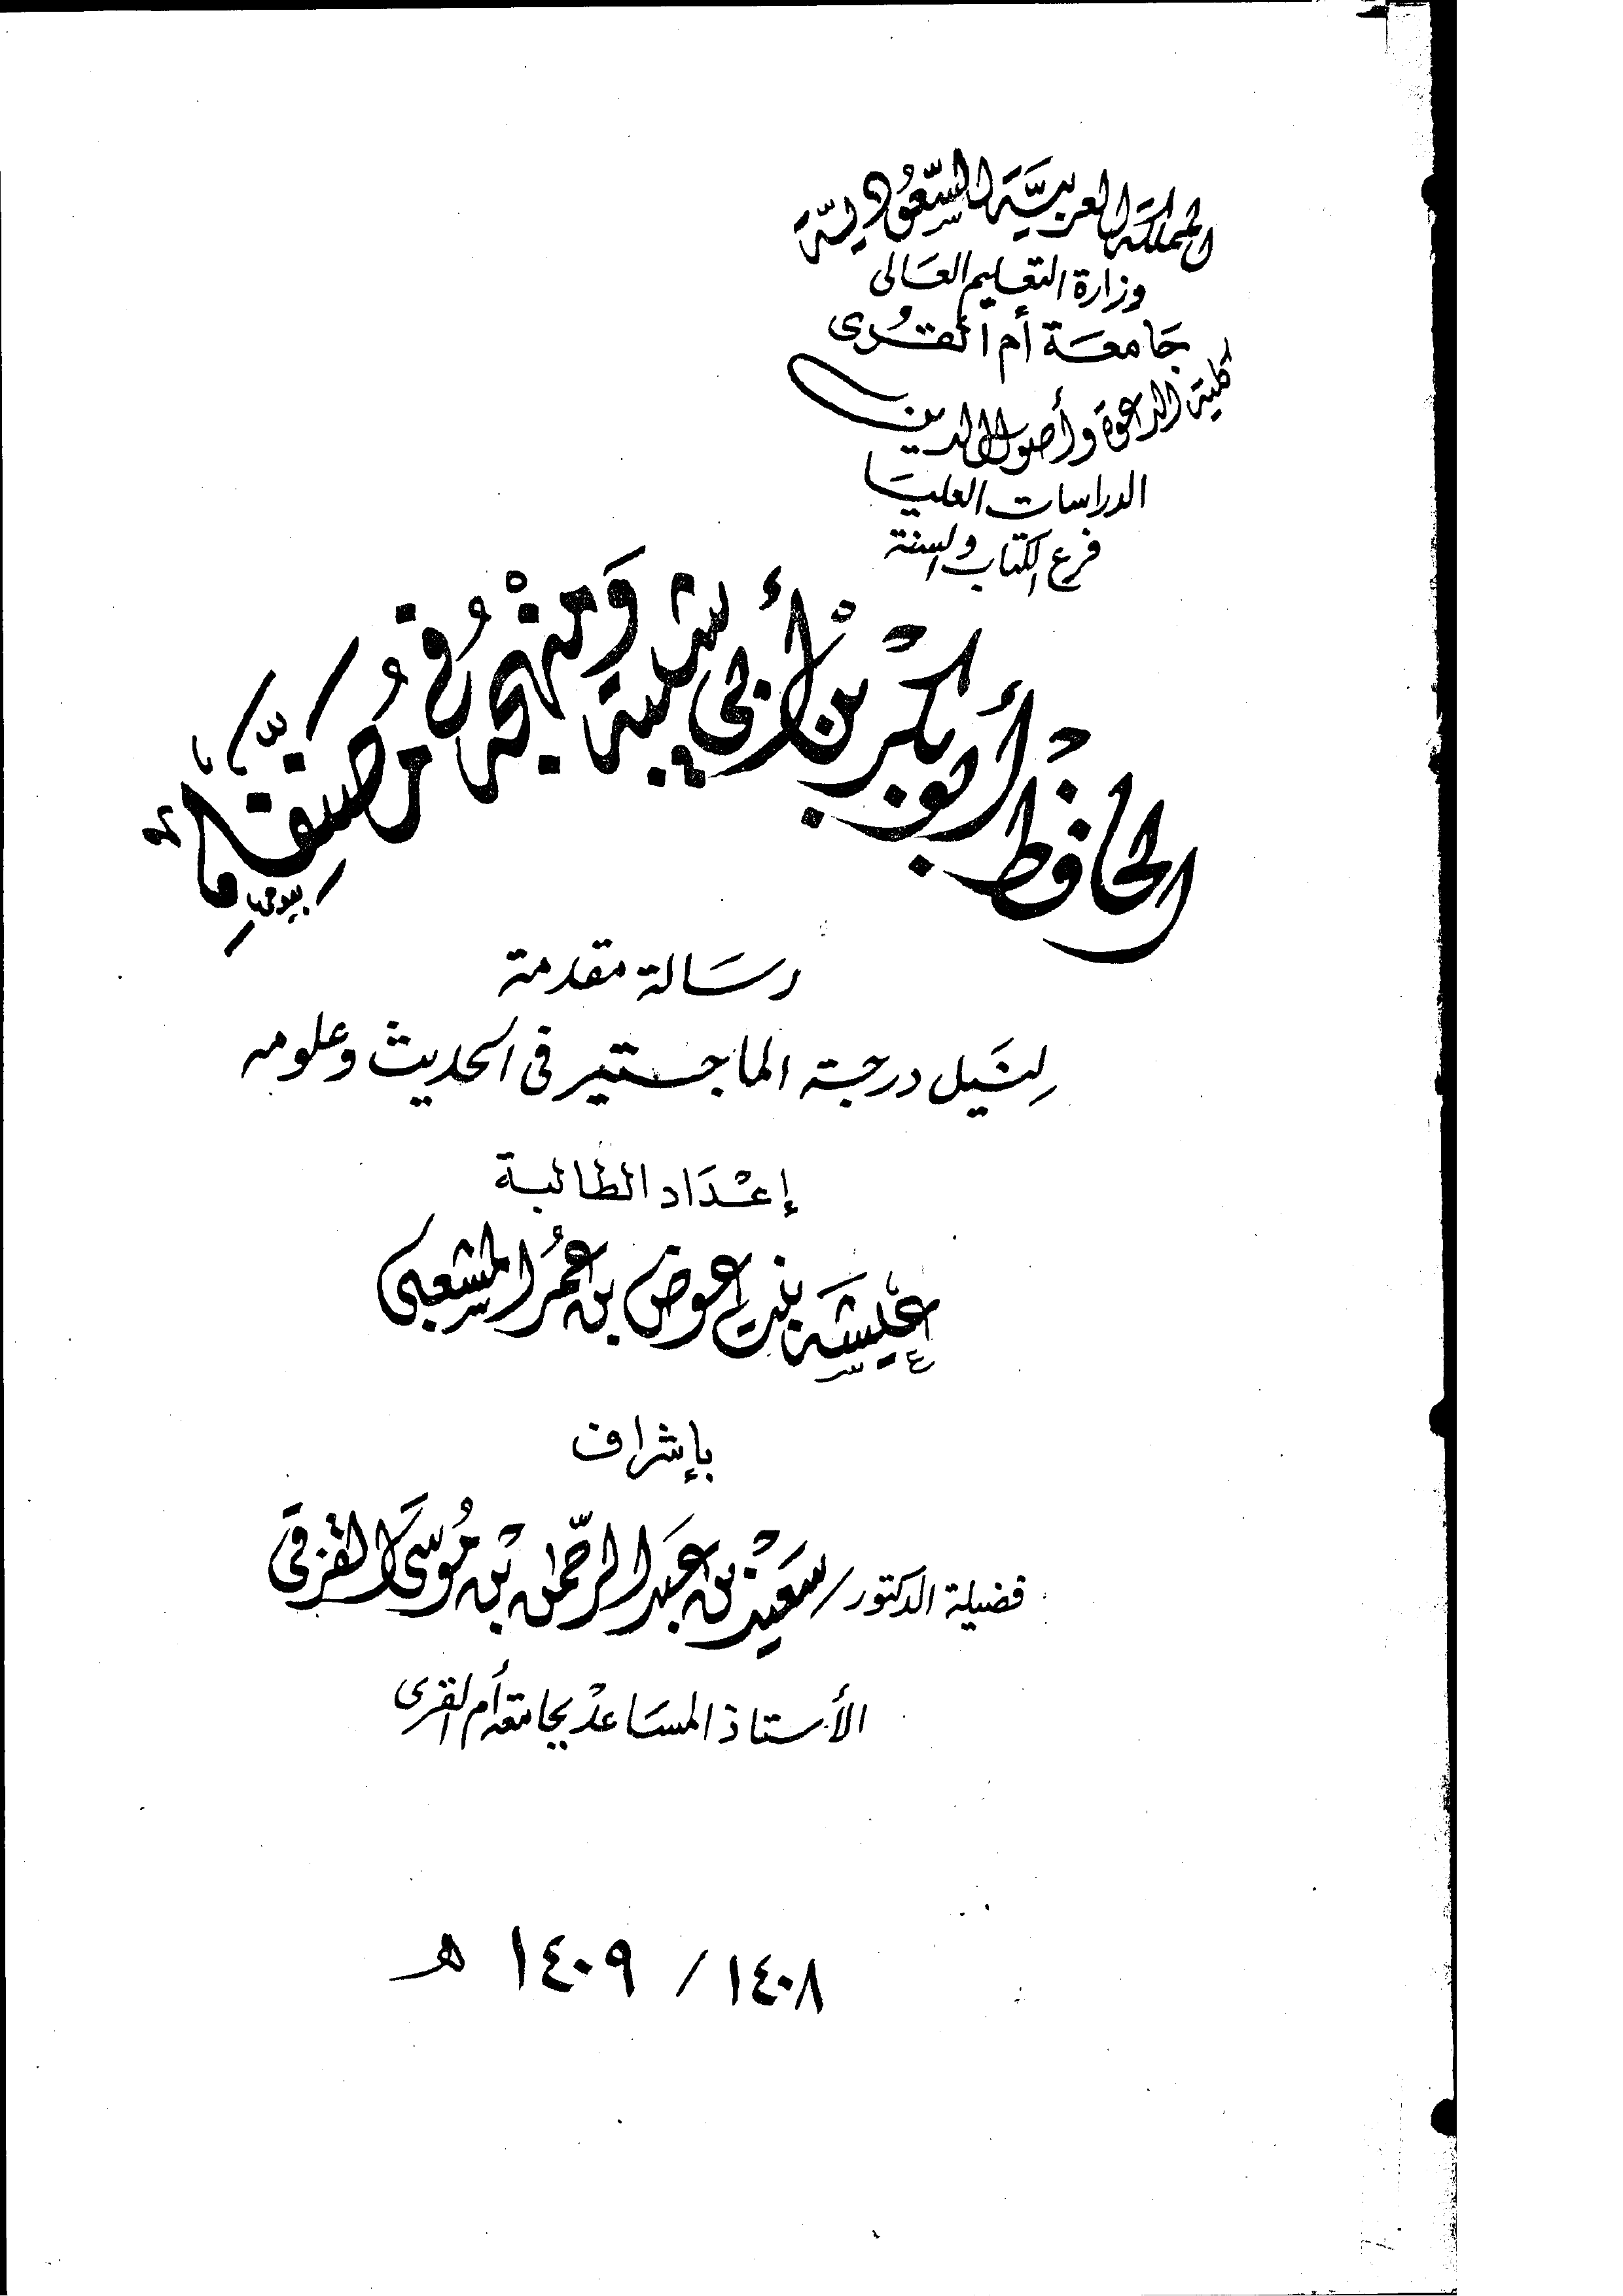 المملكة العربيَّة السّعُوديّة
وزارة التعليم العَالى
جَامعَة أم القُرى
كلية الدعوة وأصول الدين
الدراسات العليَا
فرع الكتاب والسنة
الحافظ أبو بكر بن أبي شيبة وَمنهْجهُ في مُصنَّفه
رسَالة مقدمة
لِنَيل درجة الماجستير فى الحديث وعلومه
إعْدَاد الطالبة
عيشَة بنت عوض بن عمُر المشعبى
بإشراف
فضيلة الدكتور / سَعيدْ بن عبَد الرّحمن بْن مُوسَى القزقى
الأستاذ المسَاعدْ بجامعة أم القرى
١٤٠٨ / ١٤٠٩ هـ